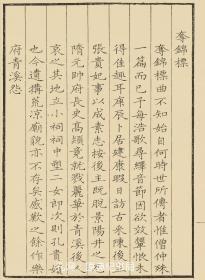 奪錦標
奪錦標曲不知始自何時世所傳者惟僧仲殊
一篇而已予每浩歌尋繹音節因欲效顰恨未
得佳趣耳庚辰卜居建康暇日訪古采陳後主
張貴妃事以成素志按後主既脫景陽井之厄
隋元帥府長史高熲竟就戮麗華於青溪後人
哀之其地立小祠祠中塑二女郎次則孔貴嬪
也今遺搆荒凉廟貌亦不存矣感歎之餘作樂
府青溪怨